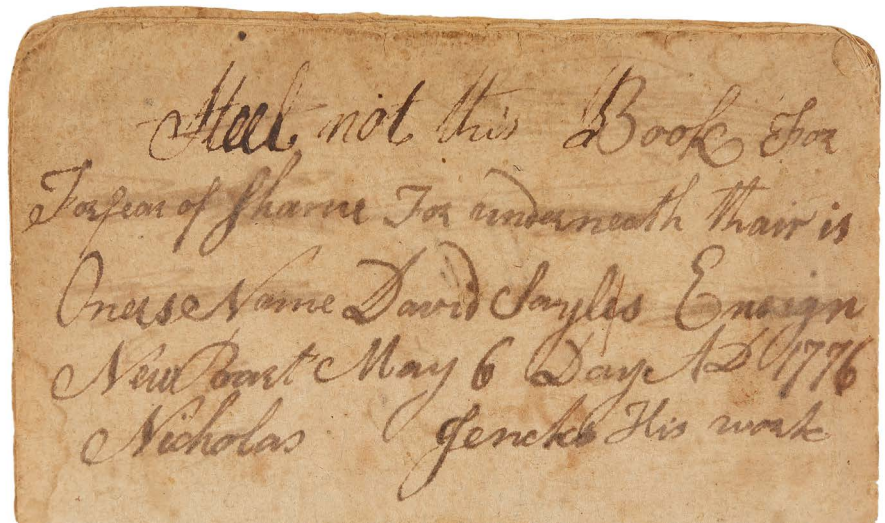 Steel not this Book For
For fear of Shame For underneath thair is
Onerse Name David Sayles Ensign
New Poart May 6 Day AD 1776
Nicholas Jencks His work